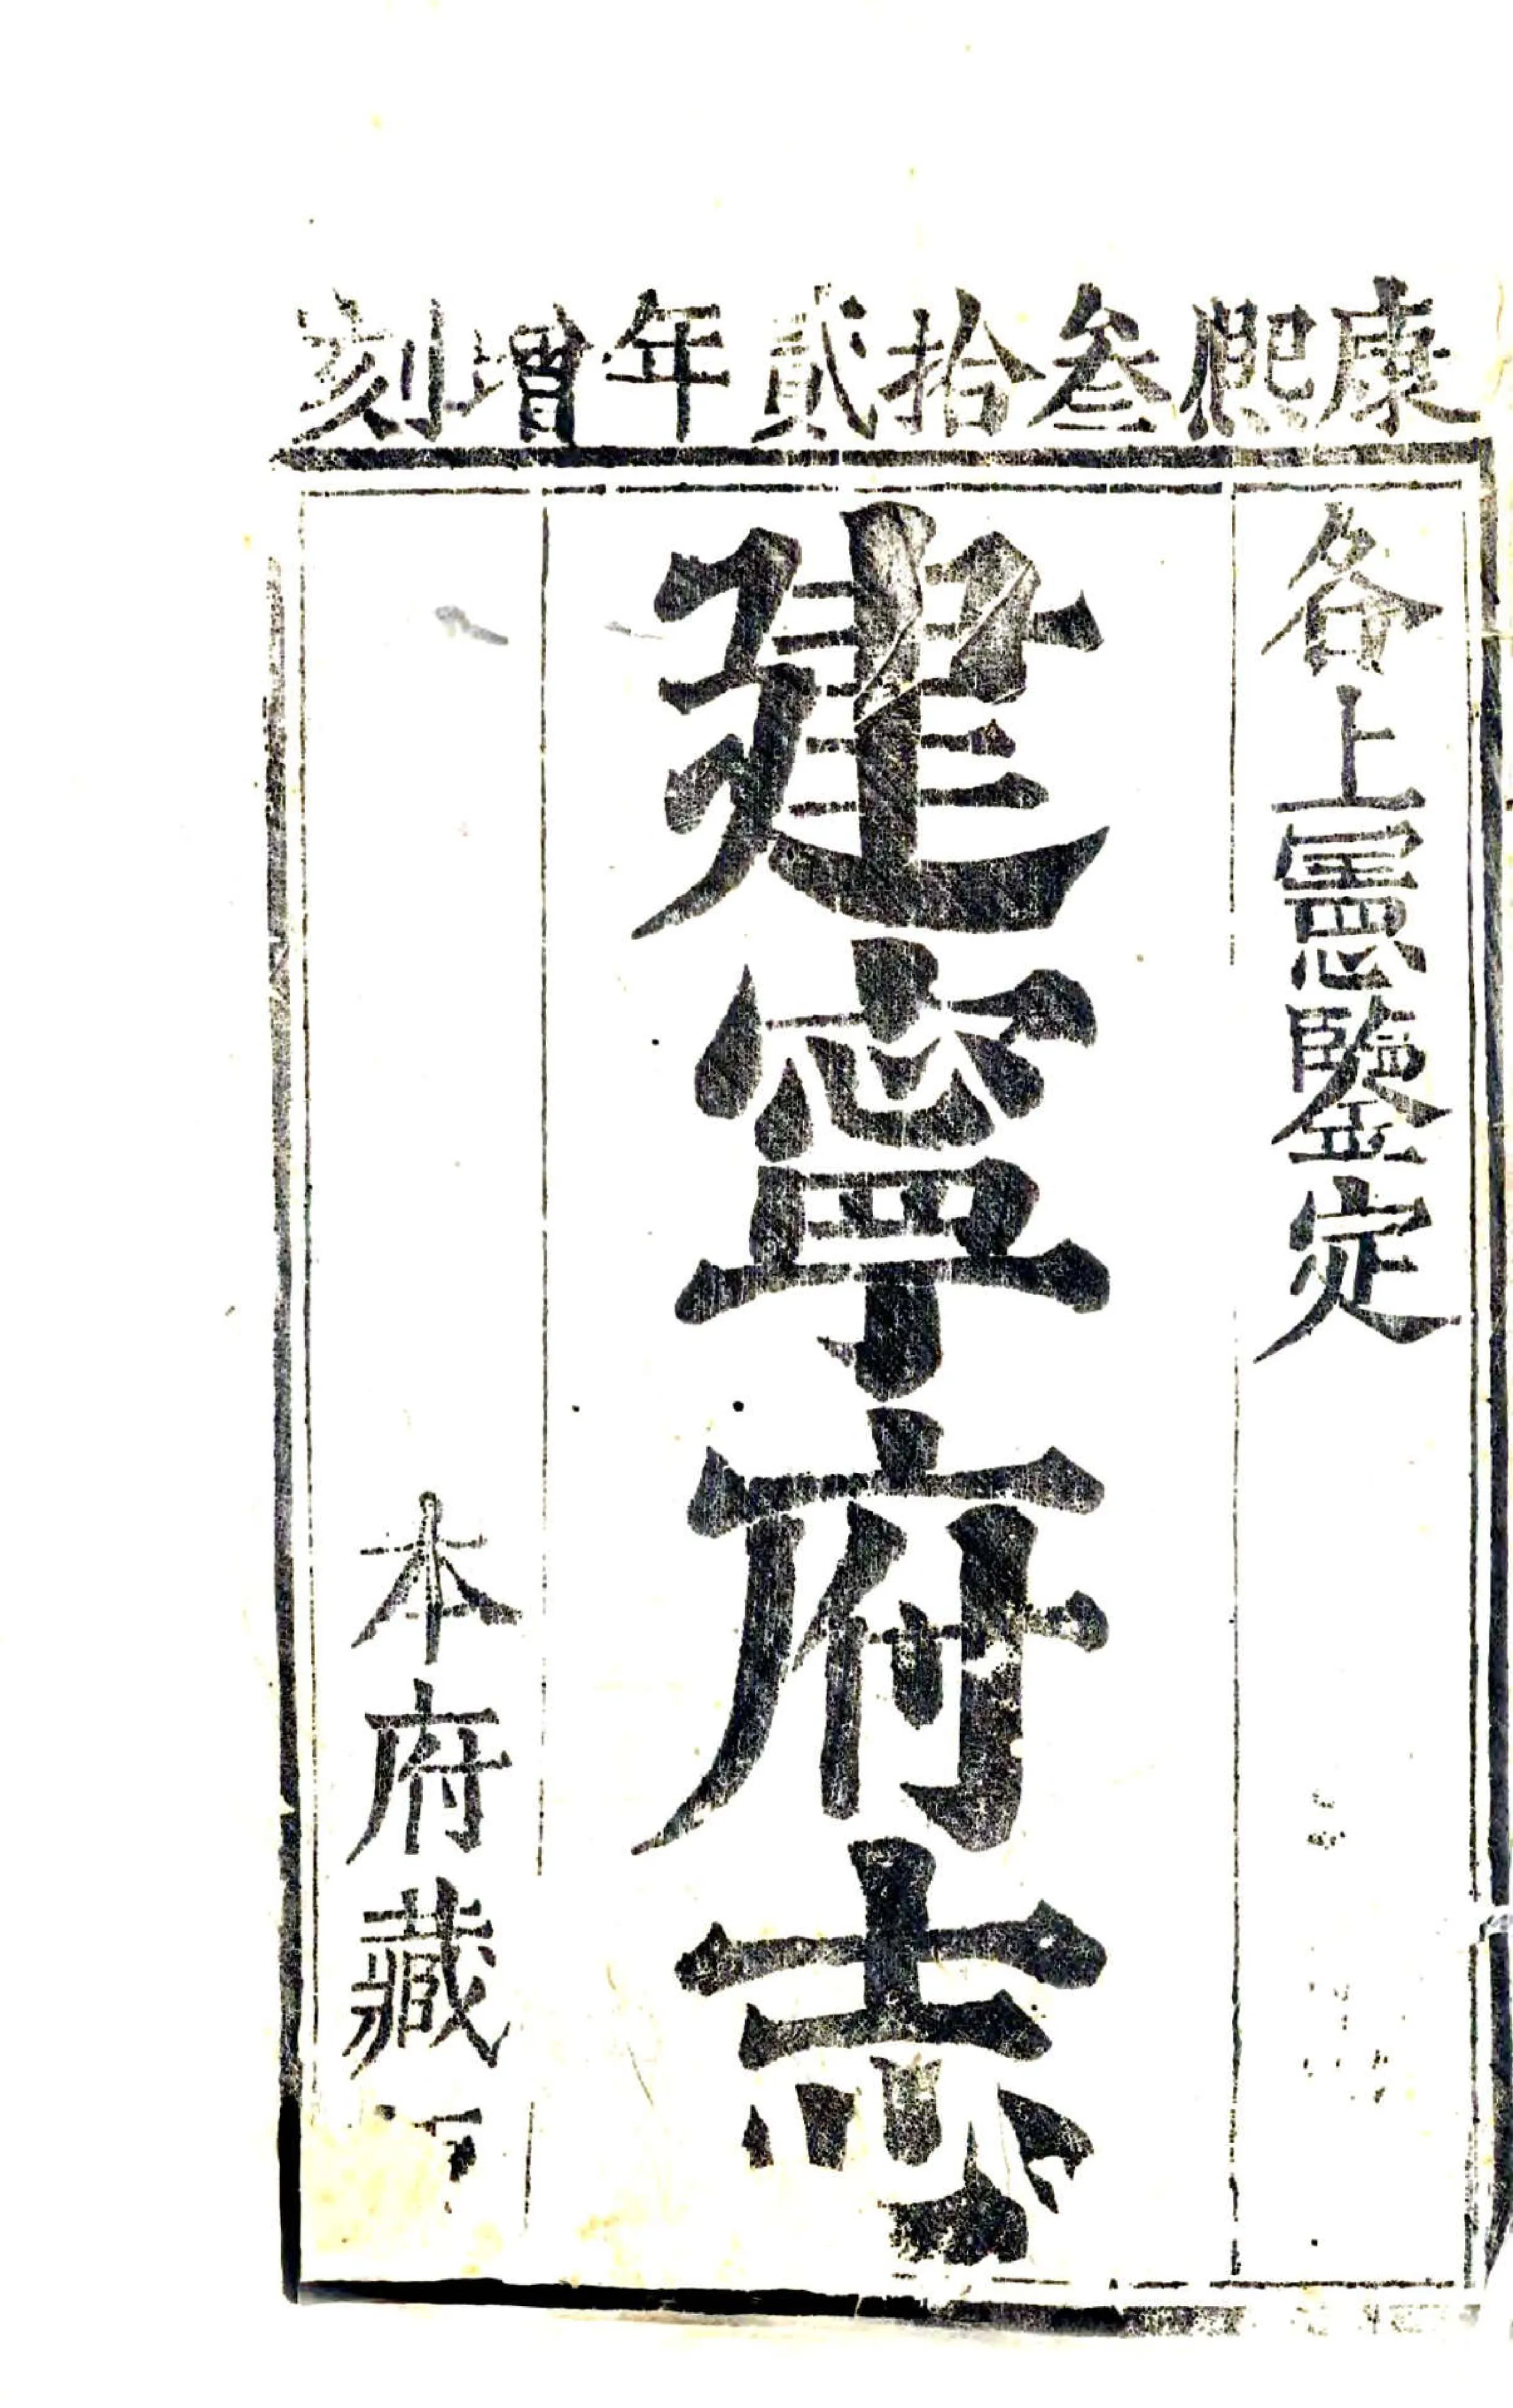 康熙叁拾貳年增刻
各上憲鑒定
建寧府志
本府藏